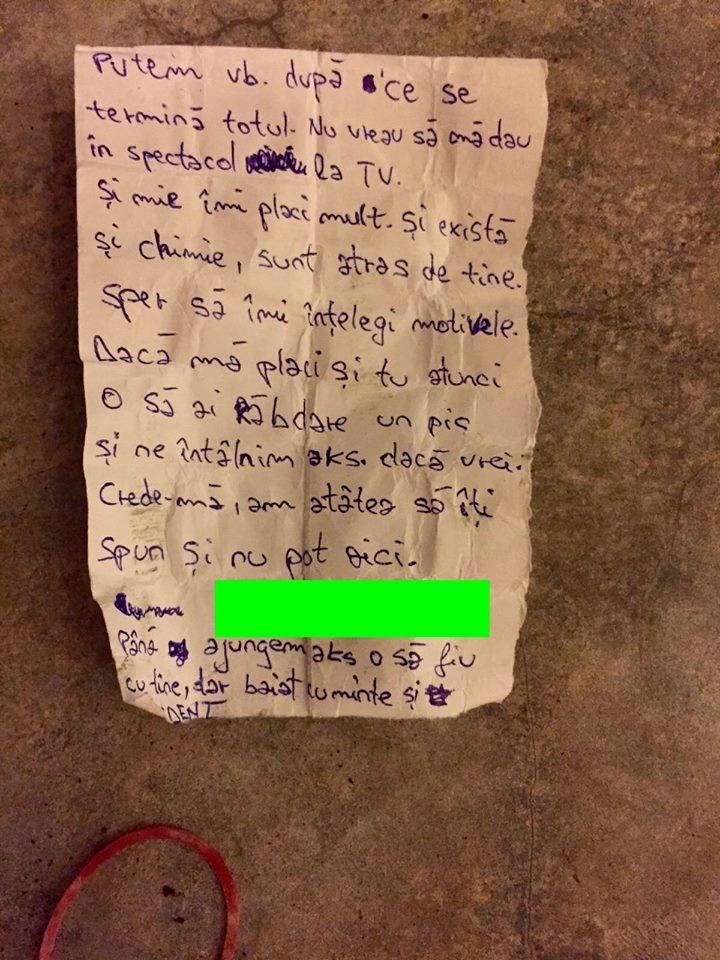 Putem vb. după ce se
termină totul. Nu vreau să mă dau
în spectacol la TV.
Și mie îmi placi mult. Și există
și chimie, sunt atras de tine.
Sper să îmi înțelegi motivele.
Dacă mă placi și tu atunci
O să ai Răbdare un pic
și ne întâlnim aks. dacă vrei.
Crede-mă, am atâtea să îți
spun și nu pot aici.
Până ajungem aks o să fiu
cu tine, dar baiat cuminte și
DENT